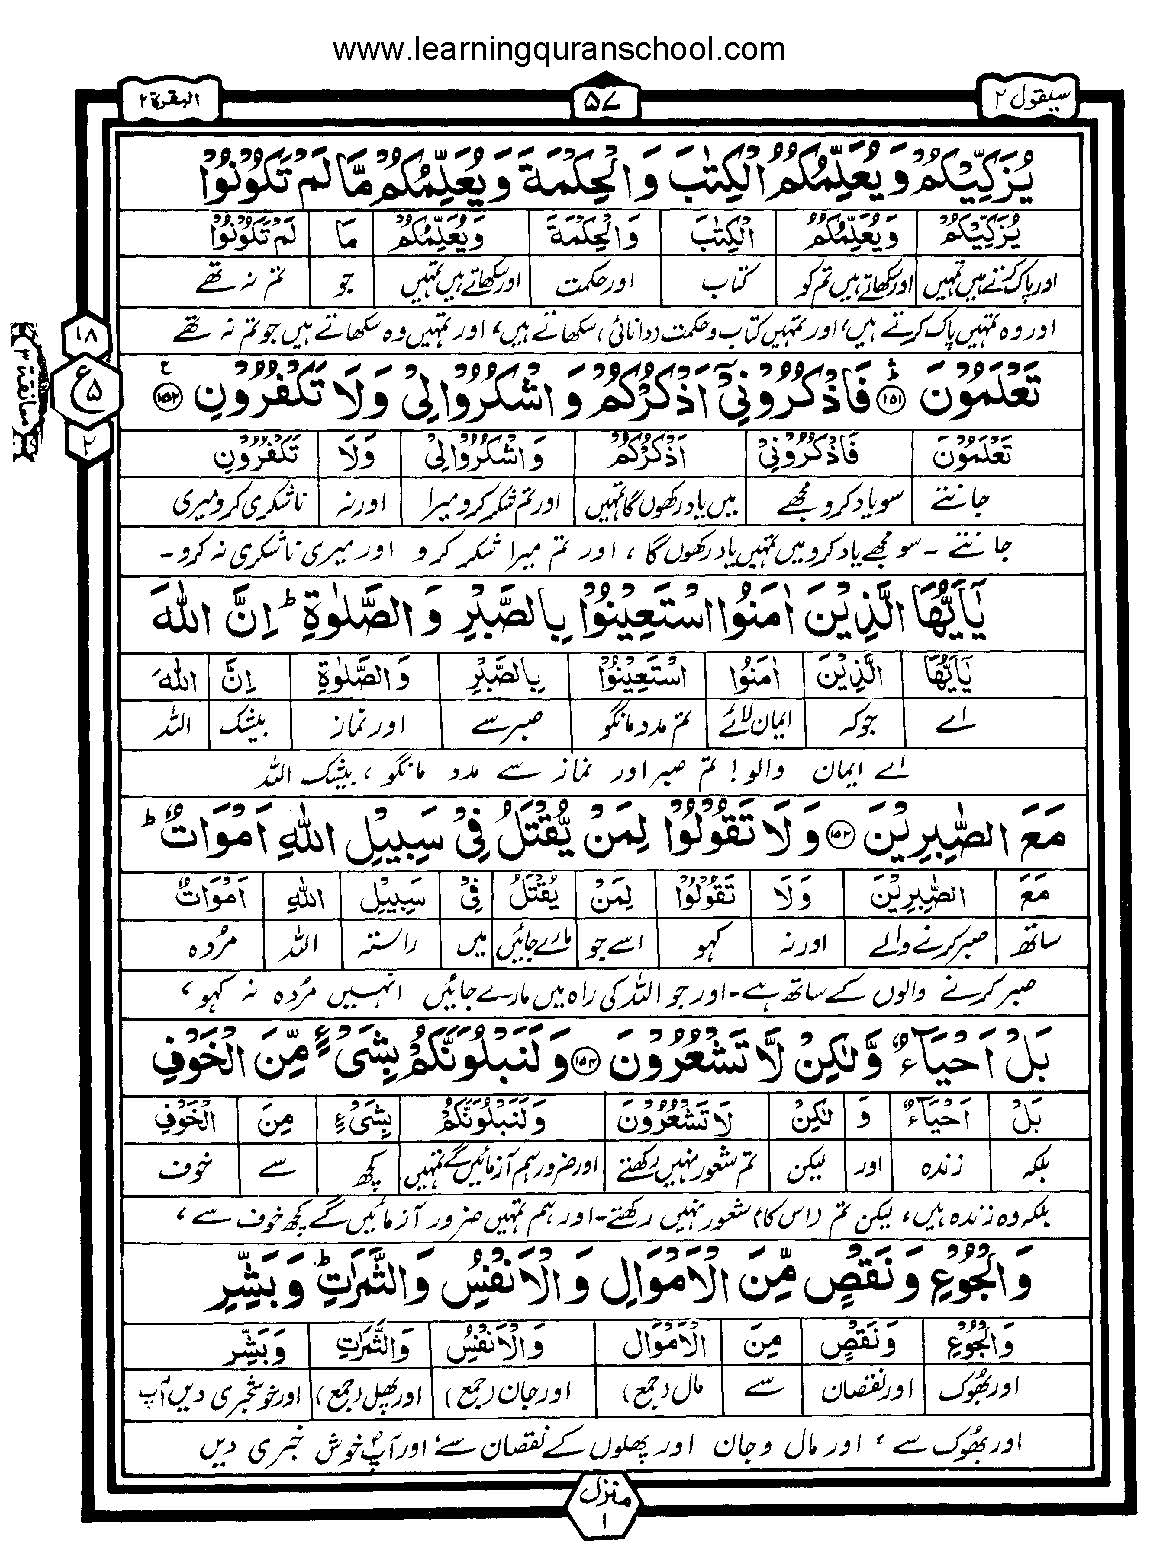 www.learningquranschool.com
سیقول ۲
۵۷
البقرة ۲
یُزَكِّیْكُمْ وَ یُعَلِّمُكُمُ الْكِتٰبَ وَ الْحِكْمَةَ وَ یُعَلِّمُكُمْ مَّا لَمْ تَكُوْنُوْا
یُزَكِّیْكُمْ وَیُعَلِّمُكُمُ الْكِتٰبَ وَالْحِكْمَةَ وَیُعَلِّمُكُمْ مَا لَمْ تَكُوْنُوْا
اور پاک کرتے ہیں تمہیں اور سکھاتے ہیں تم کو کتاب اور حکمت اور سکھاتے ہیں تمہیں جو تم نہ تھے
اور وہ تمہیں پاک کرتے ہیں، اور تمہیں کتاب و حکمت (دانائی) سکھاتے ہیں، اور تمہیں وہ سکھاتے ہیں جو تم نہ تھے
۱۸
ع
۵
۲
معانقة ۳
تَعْلَمُوْنَ ۱۵۱ فَاذْكُرُوْنِیْۤ اَذْكُرْكُمْ وَ اشْكُرُوْا لِیْ وَ لَا تَكْفُرُوْنِ ۱۵۲
تَعْلَمُوْنَ فَاذْكُرُوْنِیْ اَذْكُرْكُمْ وَاشْكُرُوْا لِیْ وَلَا تَكْفُرُوْنِ
جانتے سو یاد کرو مجھے میں یاد رکھوں گا تمہیں اور تم شکر کرو میرا اور نہ ناشکری کرو میری
جانتے ۔ سو مجھے یاد کرو میں تمہیں یاد رکھوں گا، اور تم میرا شکر کرو اور میری ناشکری نہ کرو۔
یٰۤاَیُّهَا الَّذِیْنَ اٰمَنُوا اسْتَعِیْنُوْا بِالصَّبْرِ وَ الصَّلٰوةِ ؕ اِنَّ اللّٰهَ
یٰۤاَیُّهَا الَّذِیْنَ اٰمَنُوا اسْتَعِیْنُوْا بِالصَّبْرِ وَالصَّلٰوةِ اِنَّ اللّٰهَ
اے جو کہ ایمان لائے تم مدد مانگو صبر سے اور نماز بیشک اللہ
اے ایمان والو! تم صبر اور نماز سے مدد مانگو، بیشک اللہ
مَعَ الصّٰبِرِیْنَ ۱۵۳ وَ لَا تَقُوْلُوْا لِمَنْ یُّقْتَلُ فِیْ سَبِیْلِ اللّٰهِ اَمْوَاتٌ ؕ
مَعَ الصّٰبِرِیْنَ وَلَا تَقُوْلُوْا لِمَنْ یُقْتَلُ فِیْ سَبِیْلِ اللّٰهِ اَمْوَاتٌ
ساتھ صبر کرنے والے اور نہ کہو اسے جو مارے جائیں میں راستہ اللہ مردہ
صبر کرنے والوں کے ساتھ ہے۔ اور جو اللہ کی راہ میں مارے جائیں انہیں مردہ نہ کہو،
بَلْ اَحْیَآءٌ وَّ لٰكِنْ لَّا تَشْعُرُوْنَ ۱۵۴ وَ لَنَبْلُوَنَّكُمْ بِشَیْءٍ مِّنَ الْخَوْفِ
بَلْ اَحْیَآءٌ وَ لٰكِنْ لَا تَشْعُرُوْنَ وَلَنَبْلُوَنَّكُمْ بِشَیْءٍ مِنَ الْخَوْفِ
بلکہ زندہ اور لیکن تم شعور نہیں رکھتے اور ضرور ہم آزمائیں گے تمہیں کچھ سے خوف
بلکہ وہ زندہ ہیں، لیکن تم (اس کا) شعور نہیں رکھتے۔ اور ہم تمہیں ضرور آزمائیں گے کچھ خوف سے،
وَ الْجُوْعِ وَ نَقْصٍ مِّنَ الْاَمْوَالِ وَ الْاَنْفُسِ وَ الثَّمَرٰتِ ؕ وَ بَشِّرِ
وَالْجُوْعِ وَنَقْصٍ مِنَ الْاَمْوَالِ وَالْاَنْفُسِ وَالثَّمَرٰتِ وَبَشِّرِ
اور بھوک اور نقصان سے مال (جمع) اور جان (جمع) اور پھل (جمع) اور خوشخبری دیں آپ
اور بھوک سے، اور مال و جان اور پھلوں کے نقصان سے، اور آپؐ خوش خبری دیں
منزل ۱